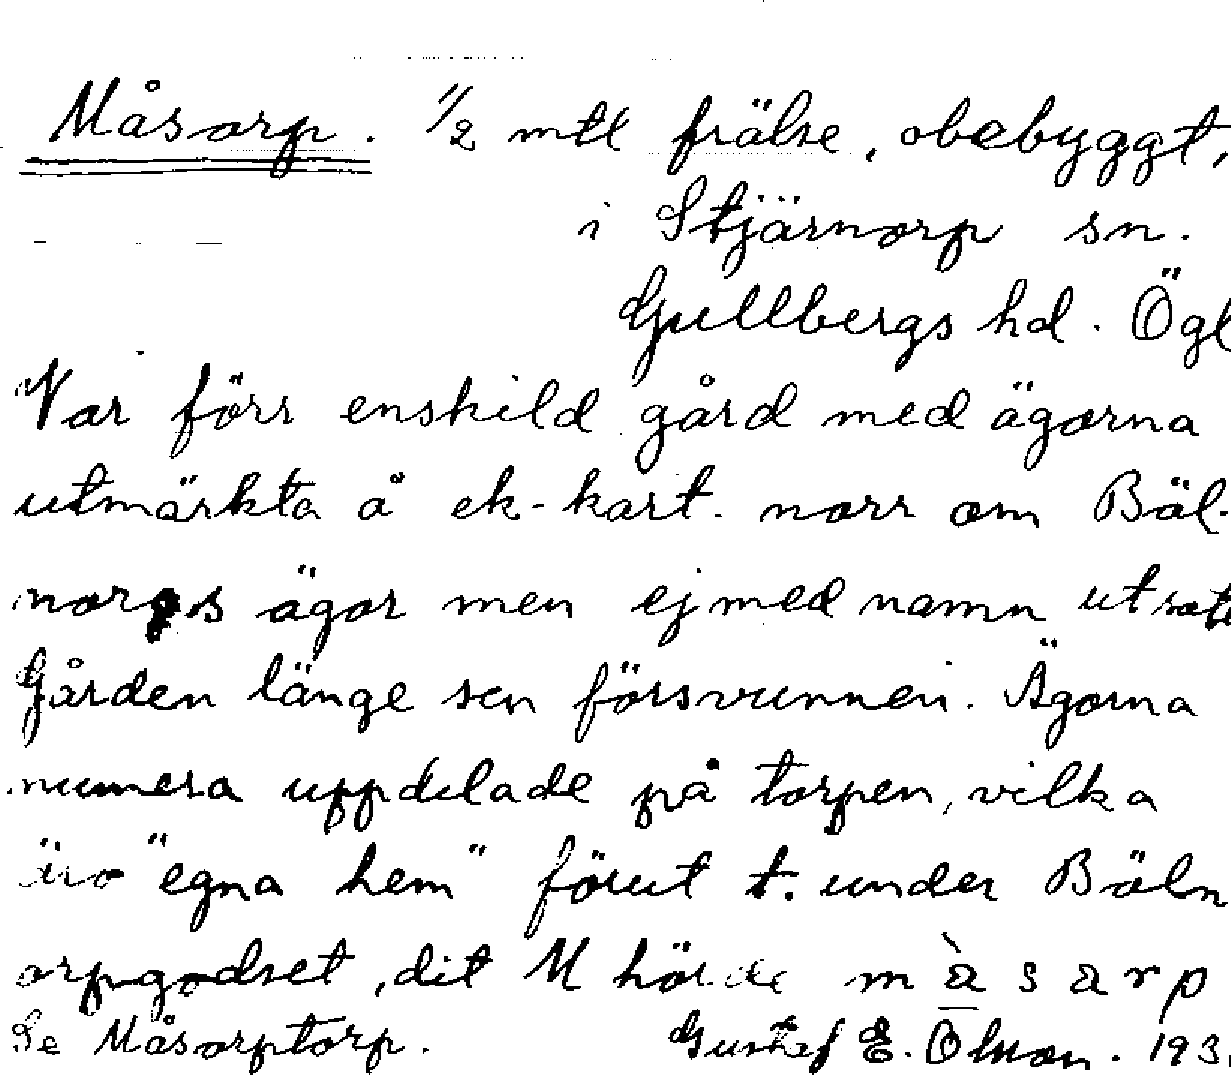 Måsarp. 1/2 mtl frälse, obebyggt,
i Stjärnorp sn.
Gullbergs hd. Ögl
Var förr enskild gård med ägorna
utmärkta å ek-kart. norr om Bäl-
norps ägor men ej med namn utsatt
Gården länge sen försvunnen. Ägorna
numera uppdelade på torpen, vilka
äro "egna hem" förut t. under Bäln
orpgodset, dit M hörde m à s a r p
Se Måsorptorp. Gustaf E. Olsson. 193